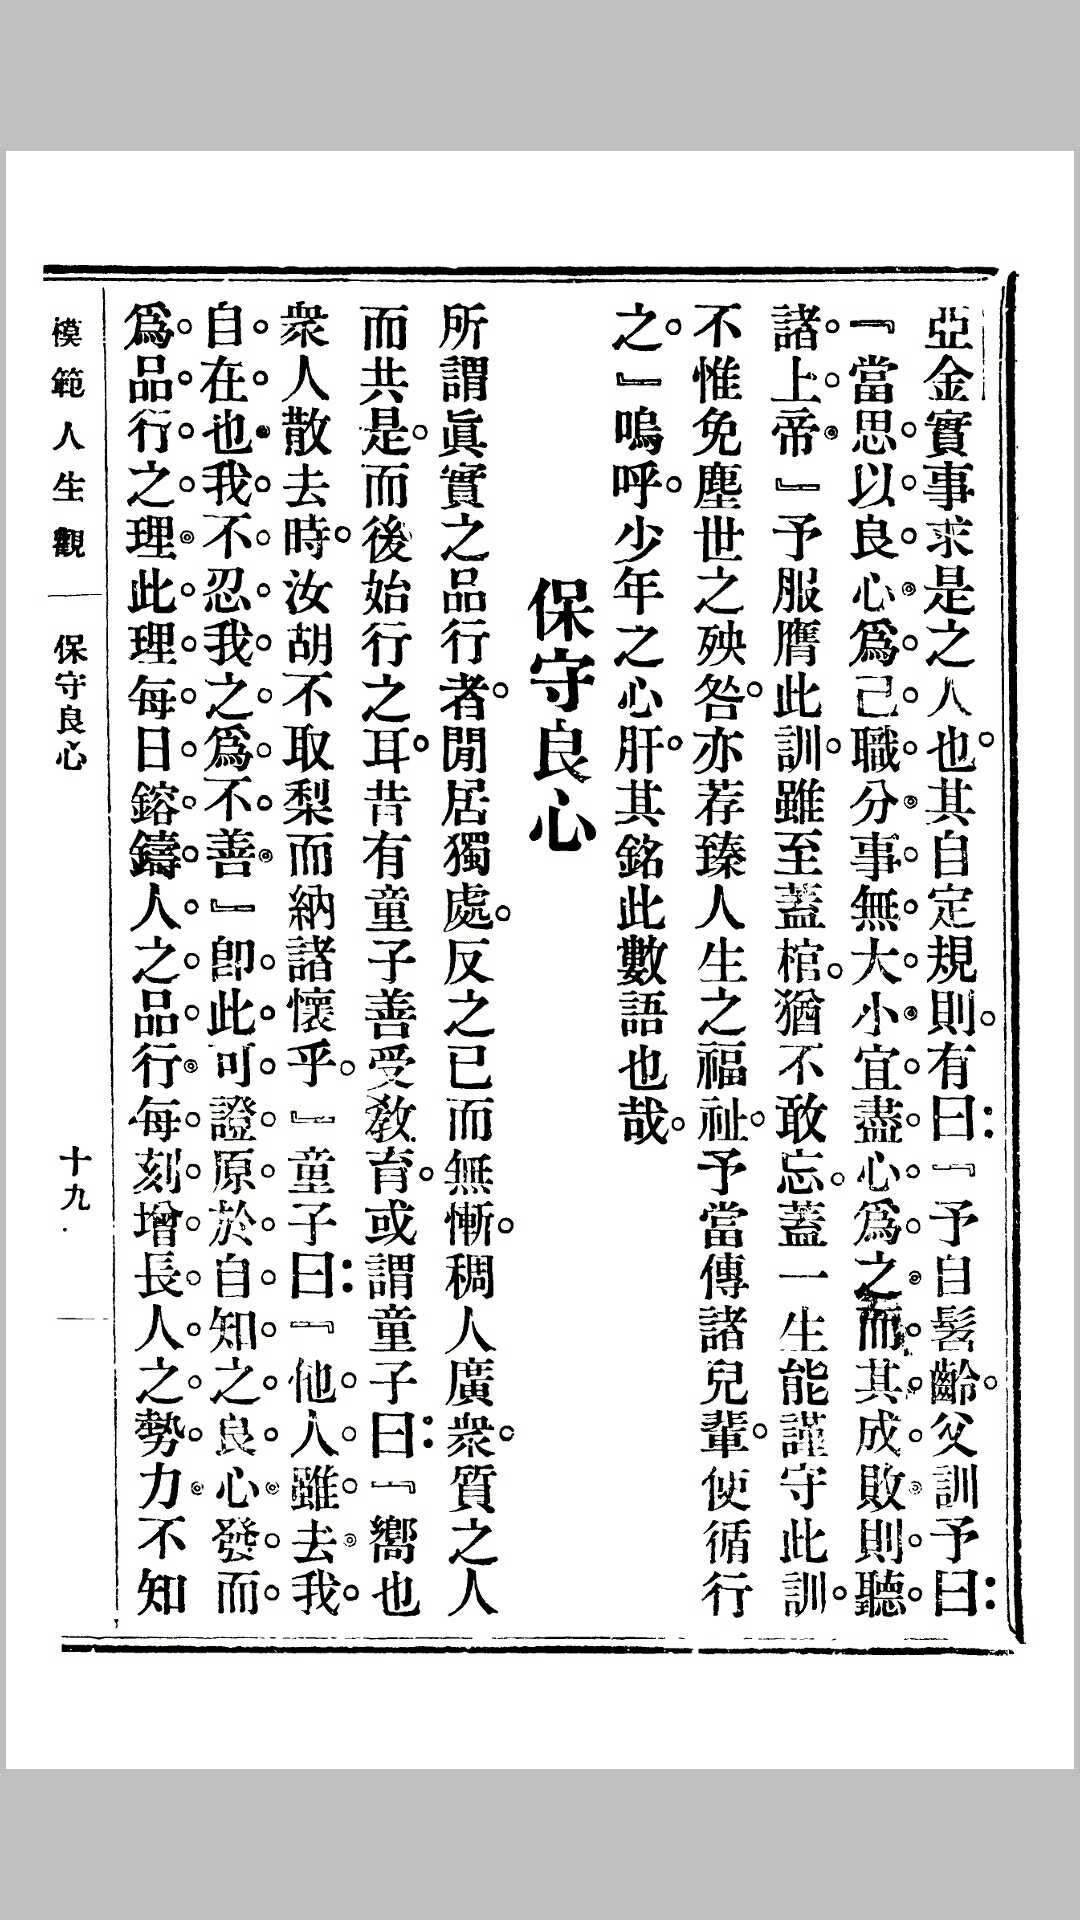 亞金實事求是之人也。其自定規則。有曰：『予自髫齡。父訓予曰：
『當思以良心爲己職分事無大小宜盡心爲之而其成敗則聽
諸上帝』予服膺此訓。雖至蓋棺。猶不敢忘。蓋一生能謹守此訓。
不惟免塵世之殃咎。亦荐臻人生之福祉。予當傳諸兒輩。使循行
之。』嗚呼。少年之心肝。其銘此數語也哉。
保守良心
所謂眞實之品行者。閒居獨處。反之已而無慚。稠人廣衆。質之人
而共是。而後始行之耳。昔有童子善受教育。或謂童子曰：『嚮也
衆人散去時。汝胡不取梨而納諸懷乎。』童子曰：『他人雖去我
自在也我不忍我之爲不善』卽此可證原於自知之良心發而
爲品行之理此理每日鎔鑄人之品行每刻增長人之勢力不知
模範人生觀 保守良心 十九